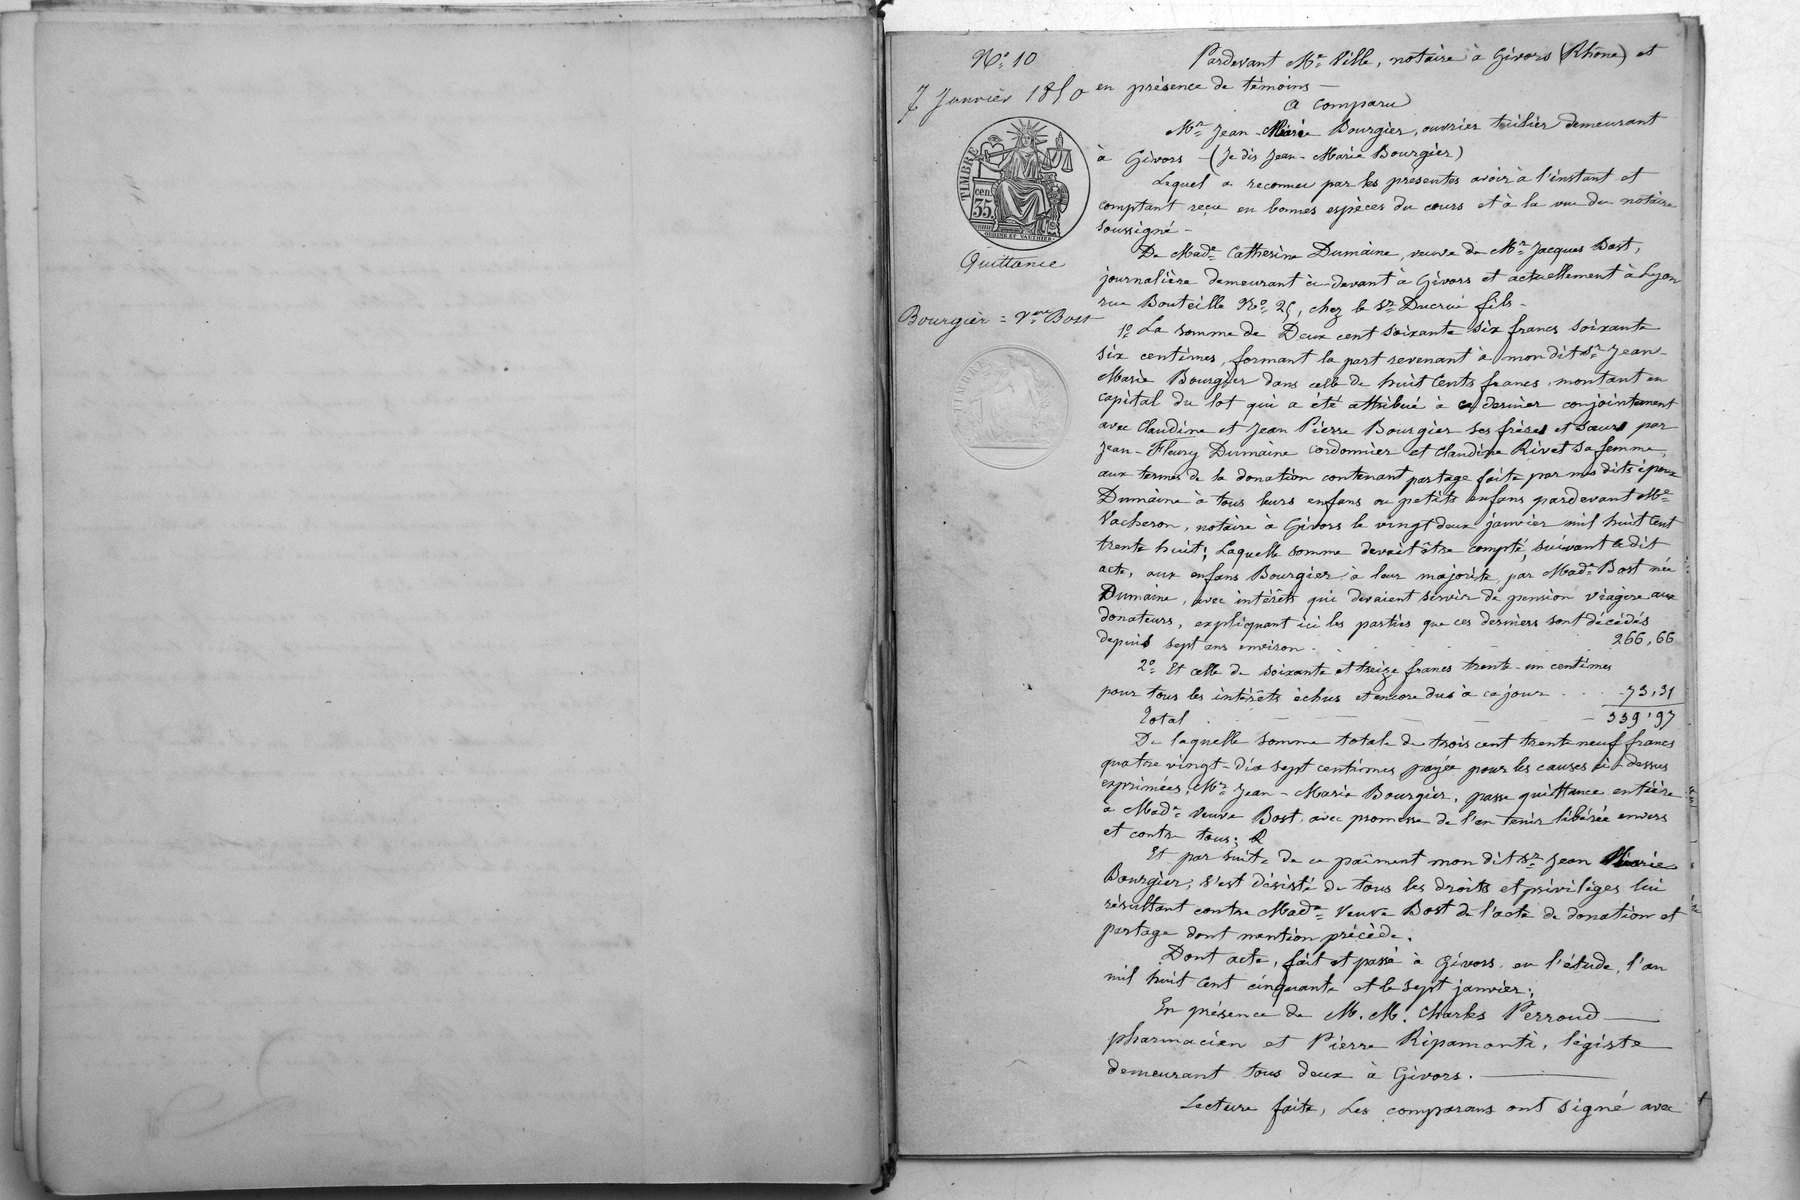 N° 10
7 Janvier 1850
TIMBRE
cen.
35.
OUDINÉ ET VAUTHIER
Quittance
Bourgier = Vve Bost
TIMBRE
Pardevant Me Ville, notaire à Givors (Rhône) et
en présence de témoins —
a comparu
Mr Jean-Marie Bourgier, ouvrier tuilier demeurant
à Givors — (Je dis Jean-Marie Bourgier)
Lequel a reconnu par les présentes avoir à l'instant et
comptant reçu en bonnes espèces du cours et à la vue du notaire
soussigné —
De Made Catherine Dumaine, veuve de Mr Jacques Bost,
journalière demeurant ci-devant à Givors et actuellement à Lyon
rue Bouteille No 25, chez le Sr Ducrui fils —
1° La somme de Deux cent soixante six francs soixante
six centimes, formant la part revenant à mon dit Sr Jean-
Marie Bourgier dans celle de huit cents francs, montant en
capital du lot qui a été attribué à ce dernier conjointement
avec Claudine et Jean Pierre Bourgier ses frères et sœurs par
Jean-Fleury Dumaine cordonnier et Claudine Rivet sa femme,
aux termes de la donation contenant partage faite par mes dits époux
Dumaine à tous leurs enfans ou petits enfans pardevant Me
Vacheron, notaire à Givors le vingt deux janvier mil huit cent
trente huit; Laquelle somme devait être compté, suivant le dit
acte, aux enfans Bourgier à leur majorité, par Made Bost née
Dumaine, avec intérêts qui devaient servir de pension viagere aux
donateurs, expliquant ici les parties que ces derniers sont décédés
depuis sept ans environ . . . . . . 266,66
2° Et celle de soixante et treize francs trente-un centimes
pour tous les intérêts échus et encore dus à ce jour . . . 73,31
Total . — — — — — 339,97
De laquelle somme totale de trois cent trente neuf francs
quatre vingt-dix sept centimes payée pour les causes ci-dessus
exprimées, Mr Jean-Marie Bourgier, passe quittance entière
à Made Veuve Bost, avec promesse de l'en tenir libérée envers
et contre tous;
Et par suite de ce paîment mon dit Sr Jean Marie
Bourgier, s'est désisté de tous les droits et priviléges lui
résultant contre Made Veuve Bost de l'acte de donation et
partage dont mention précède.
Dont acte, fait et passé à Givors, en l'étude, l'an
mil huit cent cinquante et le sept janvier;
En présence de M. M. Charles Perroud —
pharmacien et Pierre Ripamonti, légiste
demeurant tous deux à Givors. —
Lecture faite, Les comparans ont signé avec